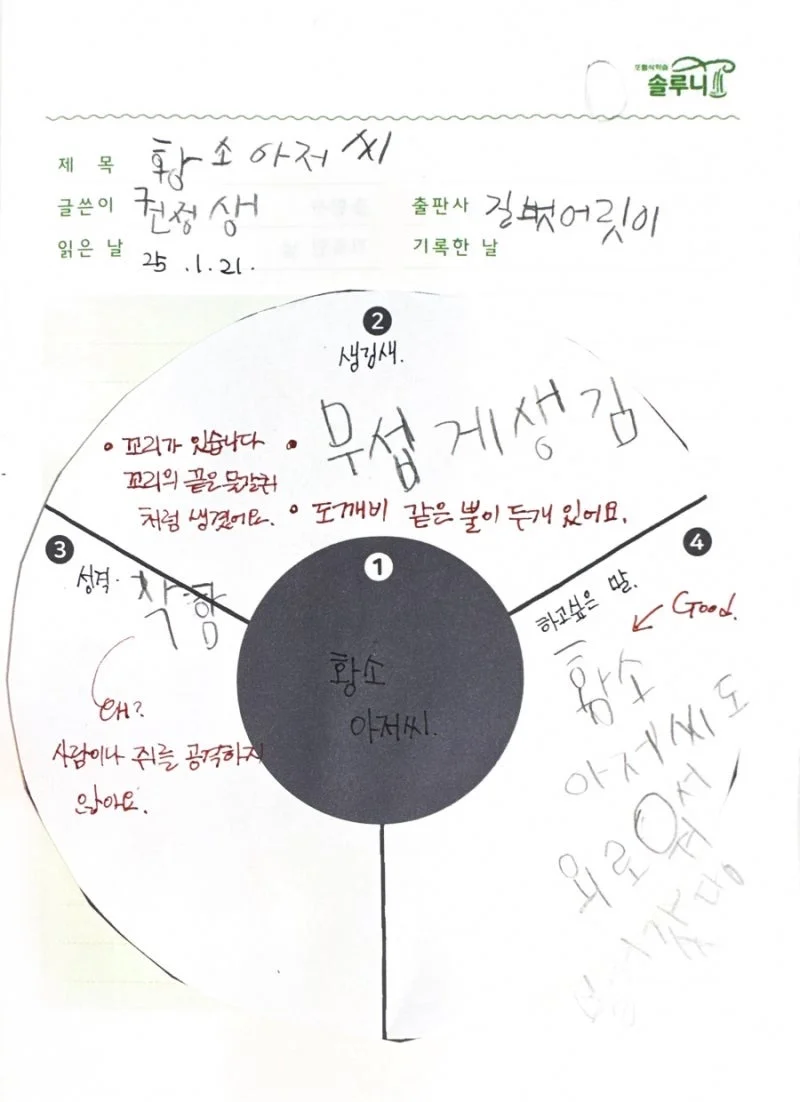 솔루니
제 목 황소아저씨
글쓴이 권정생
출판사 길벗어릿이
읽은 날 25.1.21.
기록한 날
2
생김새.
무섭게생김
• 꼬리가 있습니다
꼬리의 끝은 뭇갈퀴
처럼 생겼어요.
• 도깨비 같은 뿔이 두개 있어요.
3
성격.
착함
왜?
사람이나 쥐를 공격하지
않아요.
1
황소
아저씨.
4
하고싶은 말.
Good.
황소
아저씨도
외로워서